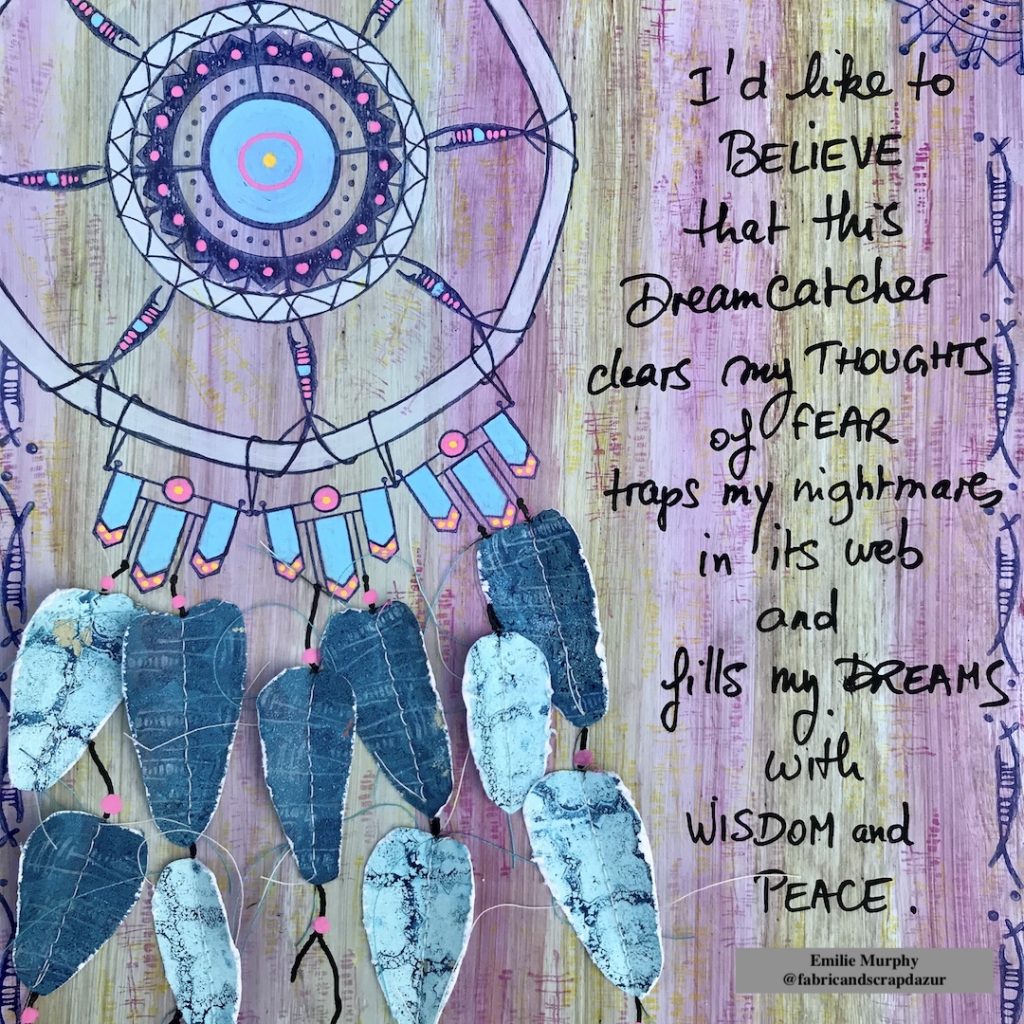 I'd like to
BELIEVE
that this
Dreamcatcher
clears my THOUGHTS
of FEAR
traps my nightmares
in its web
and
fills my DREAMS
with
WISDOM and
PEACE.
Emilie Murphy
@fabricandscrapdazur